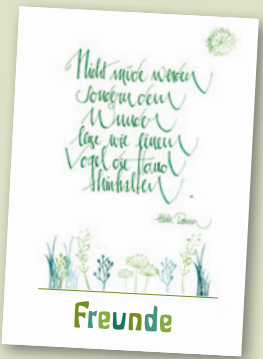 Nicht müde werden
sondern dem
Wunder
leise wie einem
Vogel die Hand
hinhalten
.
Hilde Domin
Freunde